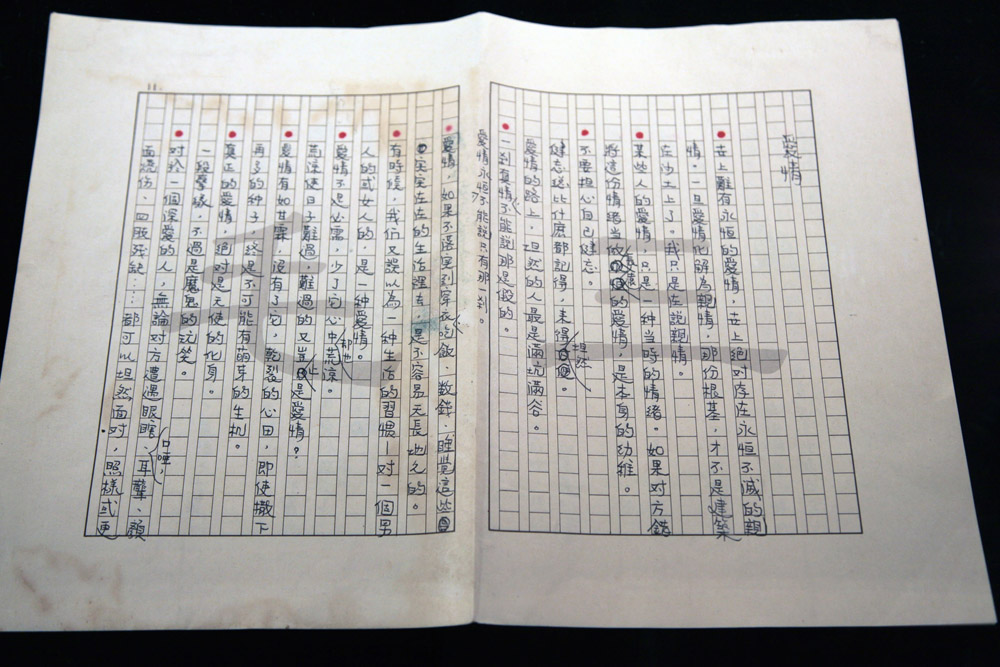 愛情
世上難有永恒的愛情，世上絕対存在永恒不滅的親
情。一旦愛情化解為親情，那份根基，才不是建築
在沙土上了。我只是在說親情。
某些人的愛情，只是一种当時的情緒。如果对方錯
將這份情緒当做長遠的愛情，是本身的幼稚。
不要担心自己健忘。
健忘总比什麽都記得，来得坦然。
愛情的路上，坦然的人最是滿坑滿谷。
一刹真情，不能說那是假的。
愛情永恒，不能說只有那一刹。
愛情，如果不落实到穿衣、吃飯、数錢、睡覺這些
实实在在的生活裡去，是不容易天長地久的。
有時候，我們又誤以為一种生活的習慣─对一個男
人的或女人的，是一种愛情。
愛情不是必需，少了它心中却也荒涼。
荒涼使日子難過，難過的又豈止是愛情？
愛情有如甘霖，沒有了它，乾裂的心田，即使撒下
再多的种子，終是不可能有萌芽的生机。
真正的愛情，絕对是天使的化身。
一段孽緣，不過是魔鬼的玩笑。
对於一個深愛的人，無論对方遭遇眼瞎、口啞，耳聾、顏
面燒伤、四肢残缺……都可以坦然面对，照樣或更
三毛